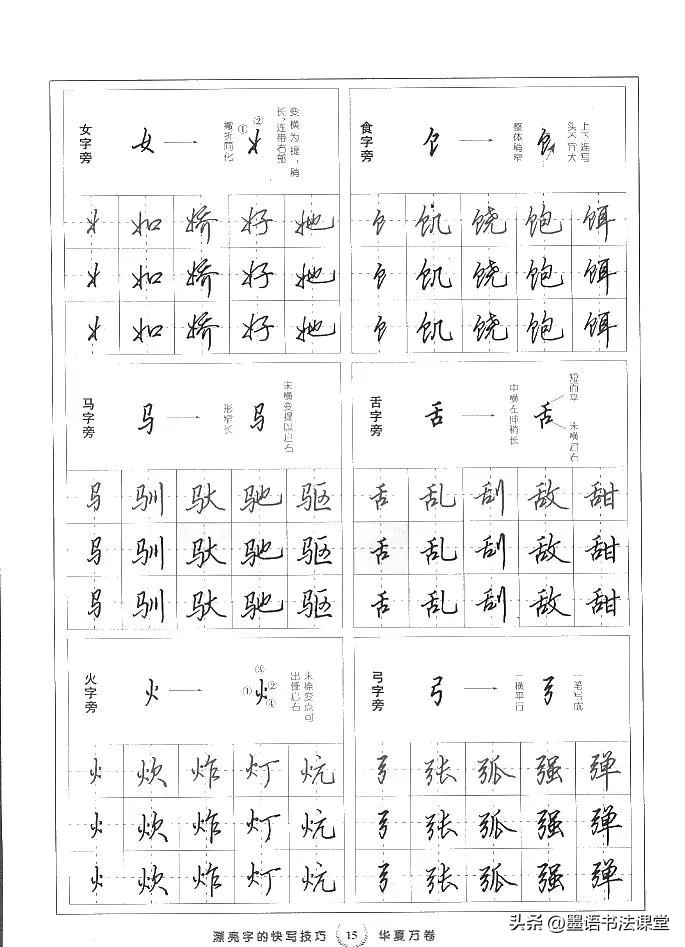 女字旁
女
撇折简化
①②
变横为提，稍
长，连带右部
女 如 娇 好 她
女 如 娇 好 她
女 如 娇 好 她
食字旁
饣
整体稍窄
饣
上下连写
头不宜大
饣 饥 饶 饱 饵
饣 饥 饶 饱 饵
饣 饥 饶 饱 饵
马字旁
马
形窄长
马
末横变提以启右
马 驯 驮 驰 驱
马 驯 驮 驰 驱
马 驯 驮 驰 驱
舌字旁
舌
中横左伸稍长
舌
短而平
末横启右
舌 乱 刮 敌 甜
舌 乱 刮 敌 甜
舌 乱 刮 敌 甜
火字旁
火
①②③④
火
末捺变点可
出锋启右
火 炊 炸 灯 炕
火 炊 炸 灯 炕
火 炊 炸 灯 炕
弓字旁
弓
二横平行
弓
一笔写成
弓 张 弧 强 弹
弓 张 弧 强 弹
弓 张 弧 强 弹
漂亮字的快写技巧 15 华夏万卷
头条 @墨语书法课堂